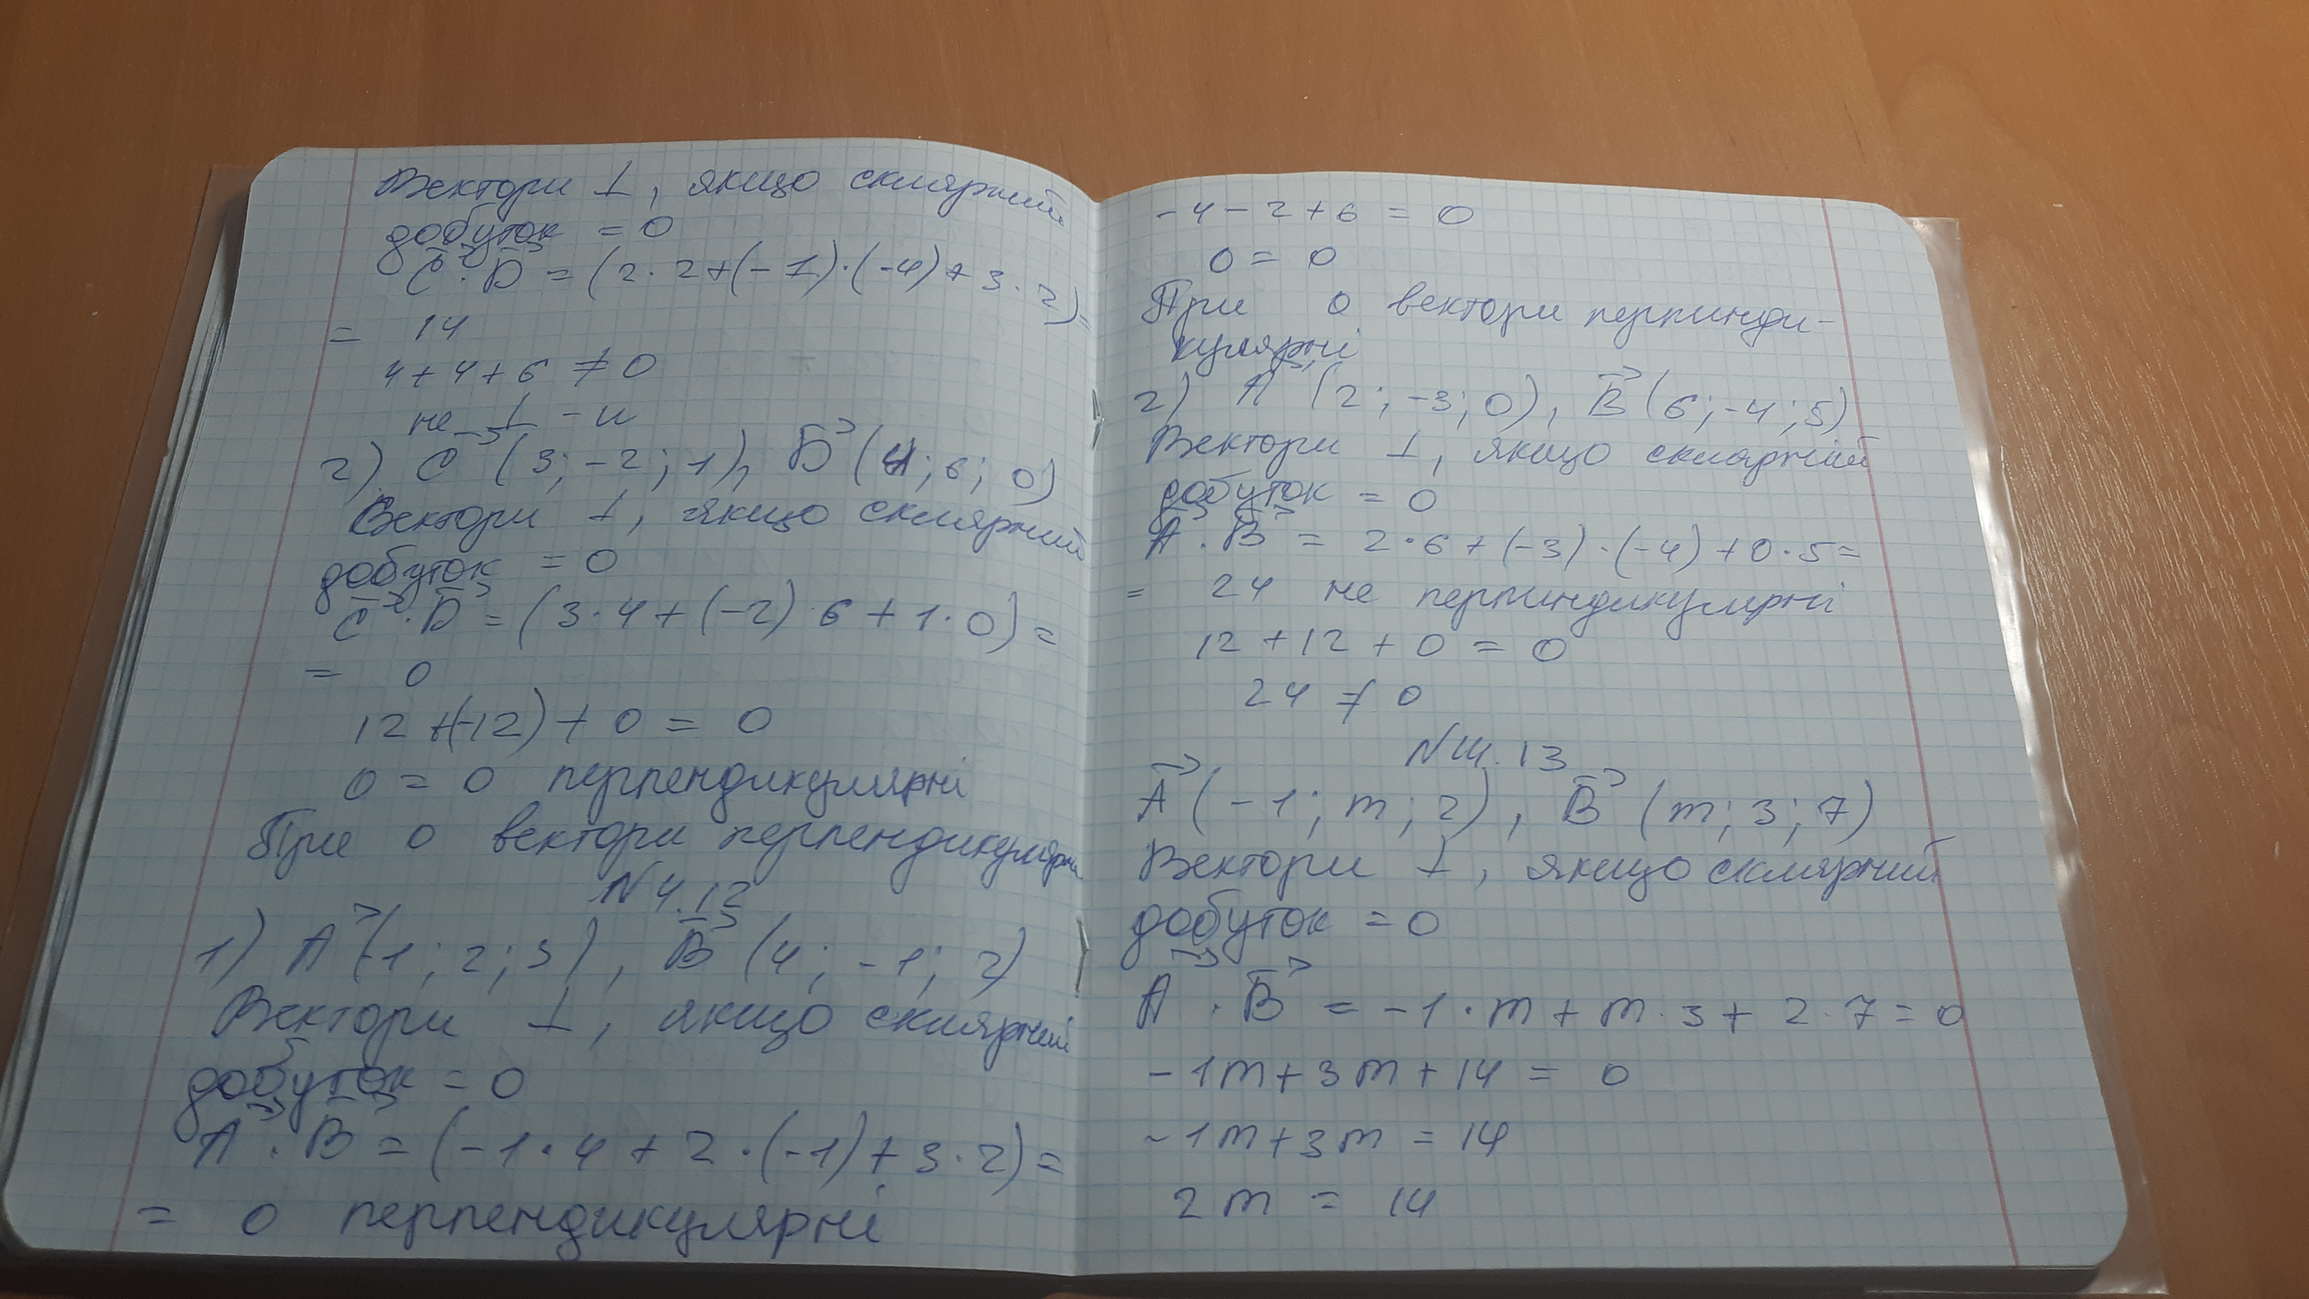 Вектори ⊥, якщо скалярний
добуток = 0
C⃗ · D⃗ = (2 · 2 + (-1) · (-4) + 3 · 2) =
= 14
4 + 4 + 6 ≠ 0
не ⊥ - и
2) C⃗ (3; -2; 1), D⃗ (4; 6; 0)
Вектори ⊥, якщо скалярний
добуток = 0
C⃗ · D⃗ = (3 · 4 + (-2) · 6 + 1 · 0) =
= 0
12 + (-12) + 0 = 0
0 = 0 перпендикулярні
При 0 вектори перпендикулярні
N 4.12
1) A⃗ (-1; 2; 3), B⃗ (4; -1; 2)
Вектори ⊥, якщо скалярний
добуток = 0
A⃗ · B⃗ = (-1 · 4 + 2 · (-1) + 3 · 2) =
= 0 перпендикулярні
-4 - 2 + 6 = 0
0 = 0
При 0 вектори перпинди-
кулярні
2) A⃗ (2; -3; 0), B⃗ (6; -4; 5)
Вектори ⊥, якщо скалярний
добуток = 0
A⃗ · B⃗ = 2 · 6 + (-3) · (-4) + 0 · 5 =
= 24 не перпиндикулярні
12 + 12 + 0 = 0
24 ≠ 0
N 4.13
A⃗ (-1; m; 2), B⃗ (m; 3; 7)
Вектори ⊥, якщо скалярний
добуток = 0
A⃗ · B⃗ = -1 · m + m · 3 + 2 · 7 = 0
-1m + 3m + 14 = 0
-1m + 3m = 14
2m = 14